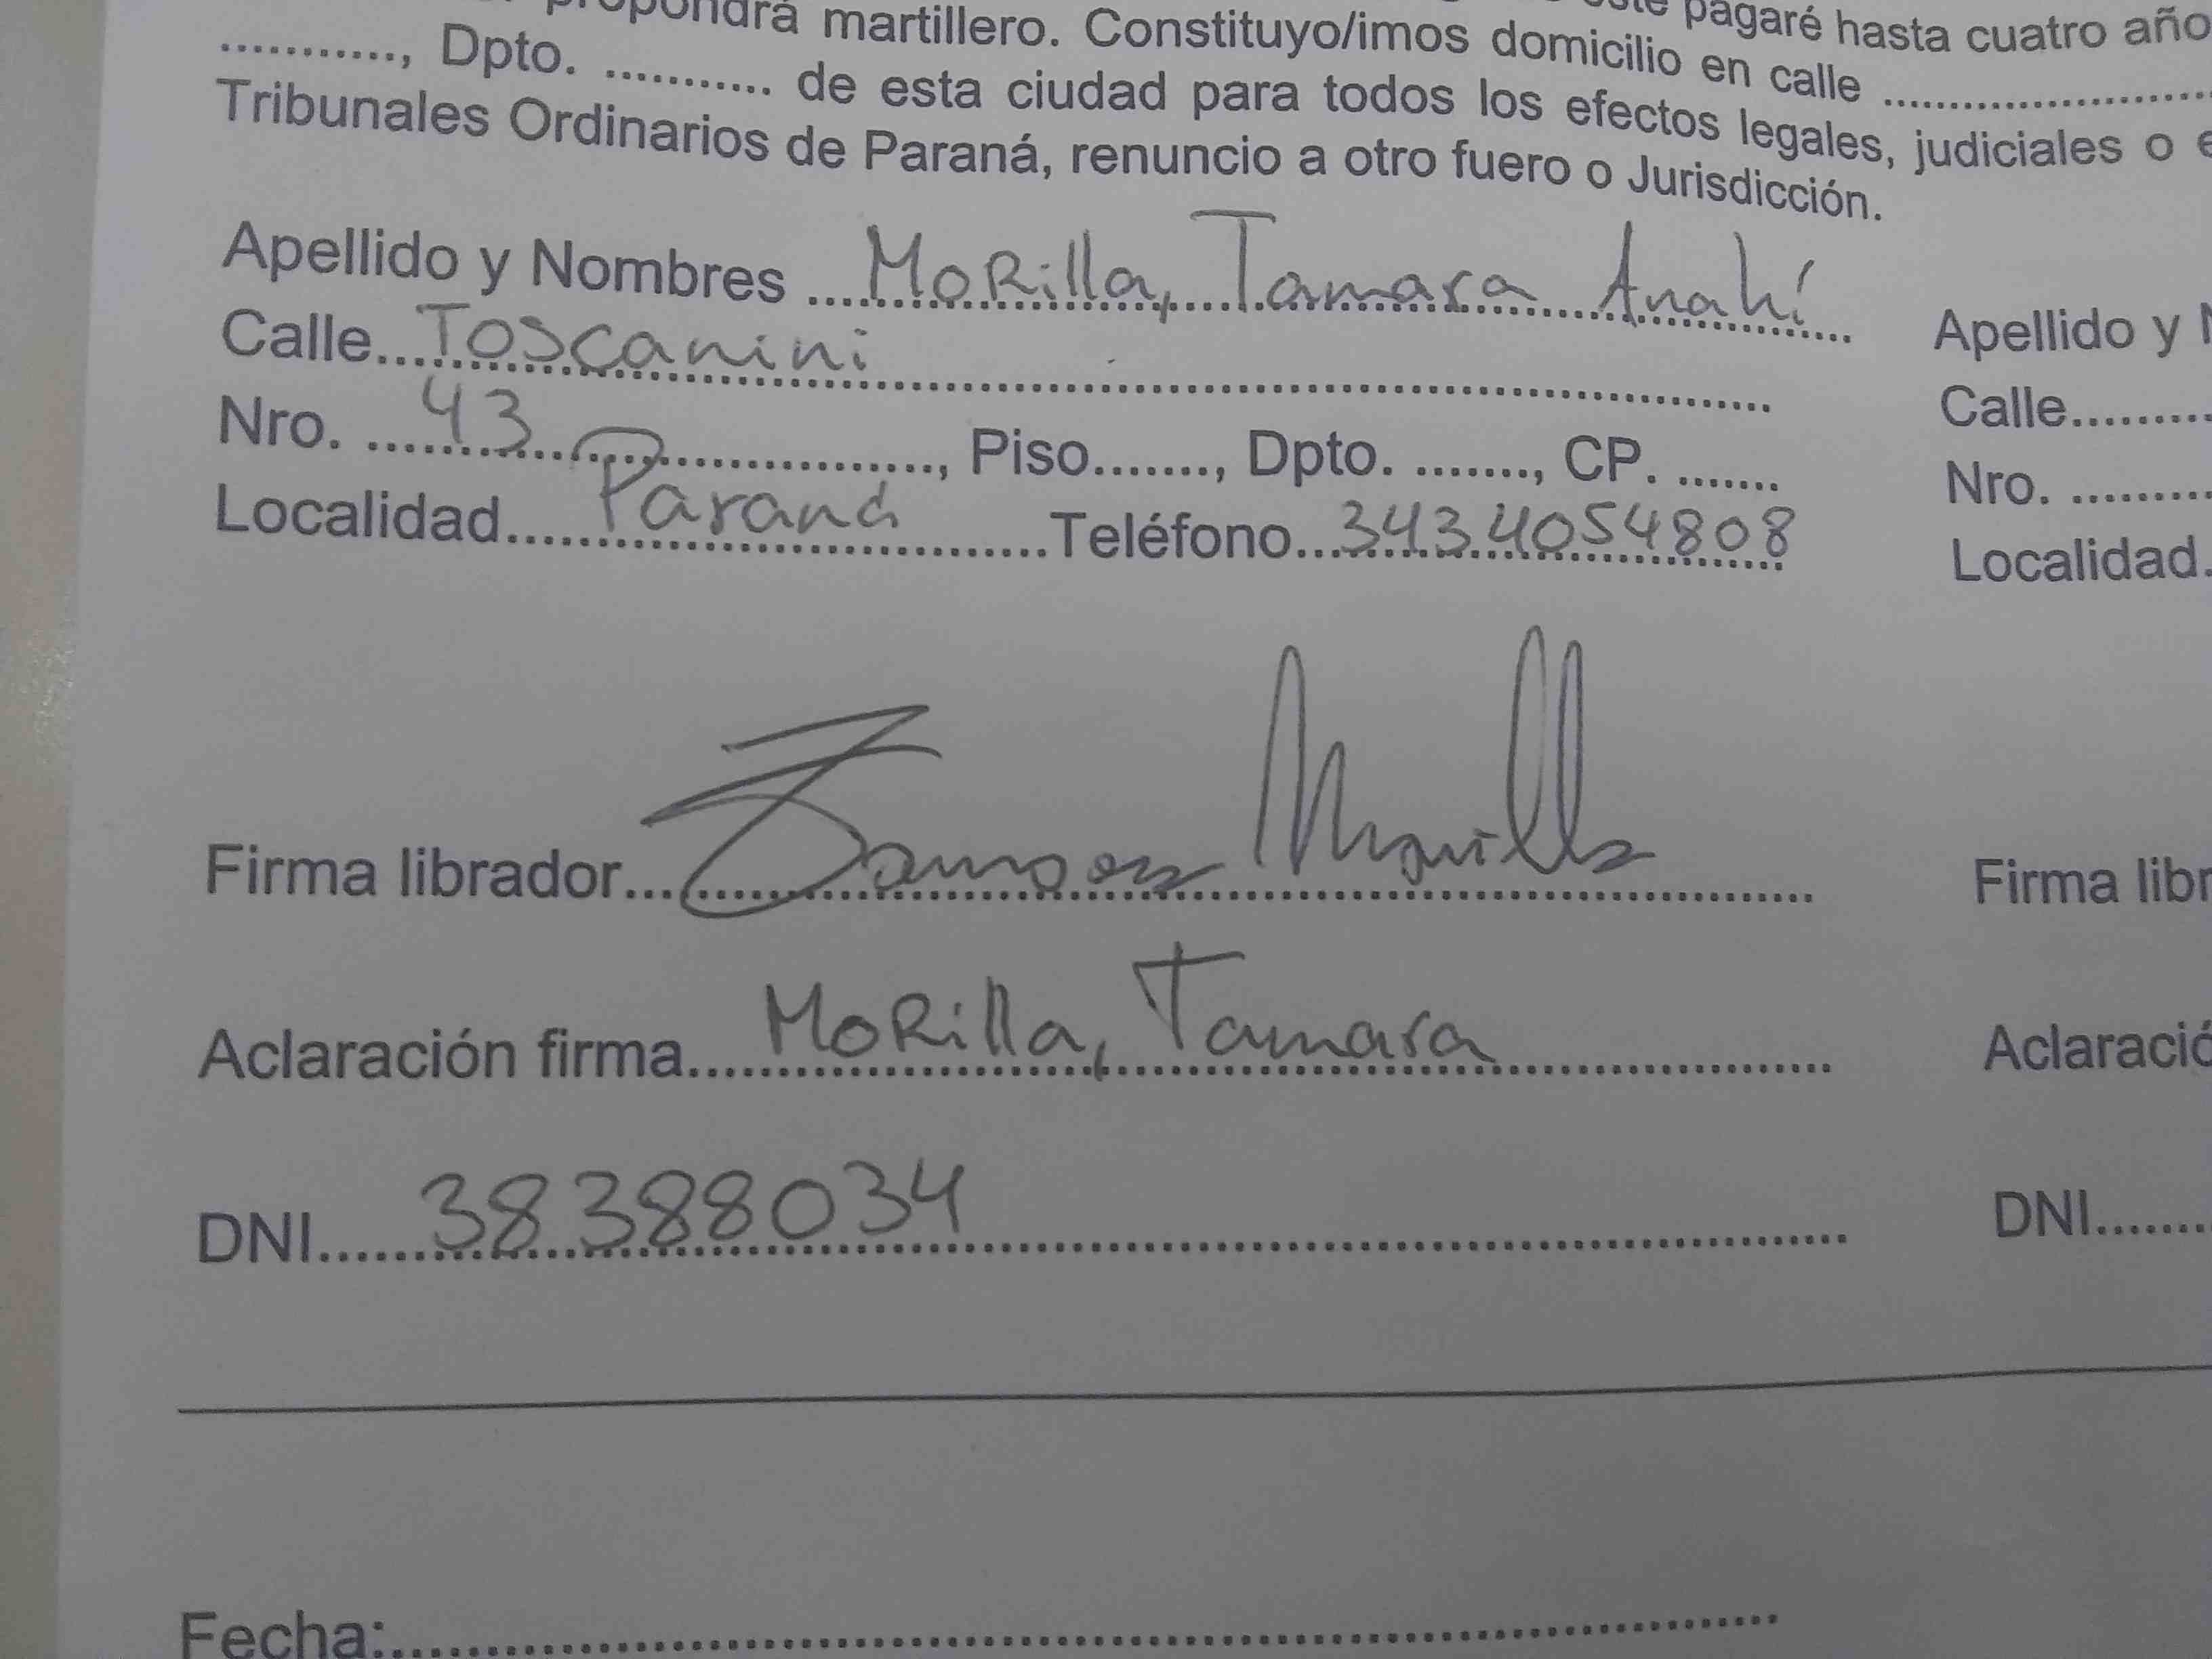 propondrá martillero. Constituyo/imos domicilio en calle ........................
pagaré hasta cuatro año
............, Dpto. ........... de esta ciudad para todos los efectos legales, judiciales o e
Tribunales Ordinarios de Paraná, renuncio a otro fuero o Jurisdicción.
Apellido y Nombres ... MoRilla, Tamara Anahí
Calle... Toscanini
Nro. ... 43 ..............., Piso......., Dpto. ......., CP. .......
Localidad... Paraná ...Teléfono... 3434054808
Firma librador... Tamara Morilla
Aclaración firma... MoRilla, Tamara
DNI... 38388034
Fecha:...
Apellido y N
Calle.........
Nro. .........
Localidad.
Firma libr
Aclaració
DNI.......